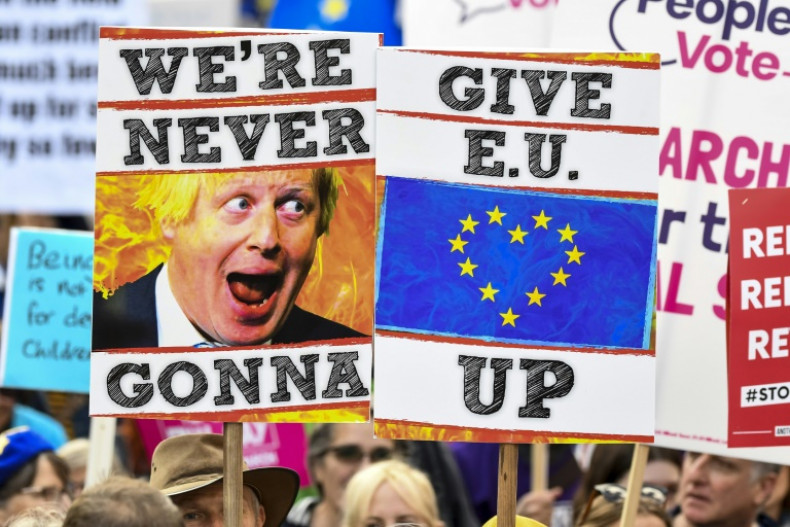 WE'RE
NEVER
GONNA
GIVE
E.U.
UP
People
Vote
ARCH
for the
AL
Being
is not
for de
Children
#STO